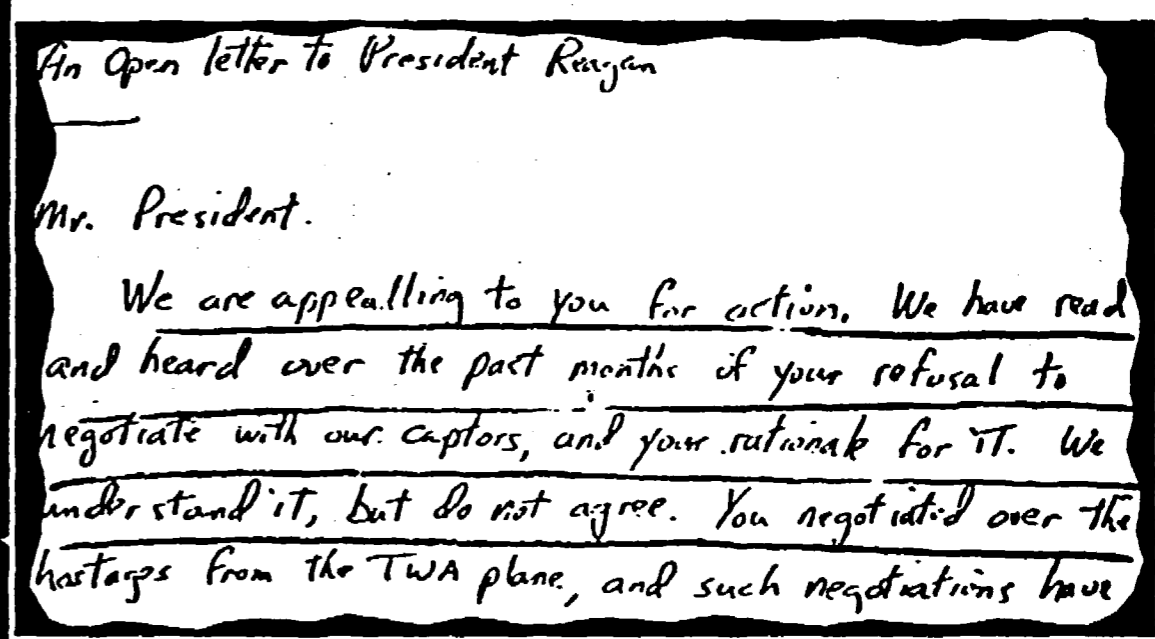 An Open letter to President Reagan
Mr. President.
We are appealling to you for action. We have read
and heard over the past months of your refusal to
negotiate with our captors, and your rationale for iT. We
understand it, but do not agree. You negotiated over the
hostages from the TWA plane, and such negotiations have